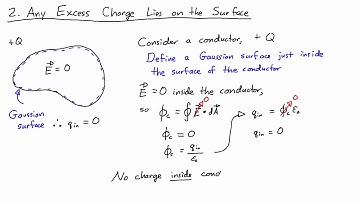 2. Any Excess Charge Lies on the Surface
+Q
E⃗ = 0
Gaussian
surface ∴ qin = 0
Consider a conductor, +Q
Define a Gaussian surface just inside
the surface of the conductor
E⃗ = 0 inside the conductor,
so ϕc = ∮ E⃗ • dA⃗ 0
ϕc = 0
ϕc = qin / ε₀
qin = ϕc ε₀ 0
qin = 0
No charge inside cond